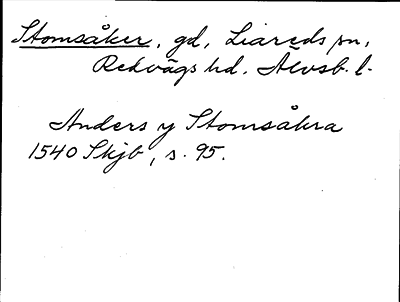 Stomsåker, gd, Liareds sn,
Redvägs hd. Älvsb. l.
Anders y Stomsåkra
1540 Skjb, s. 95.